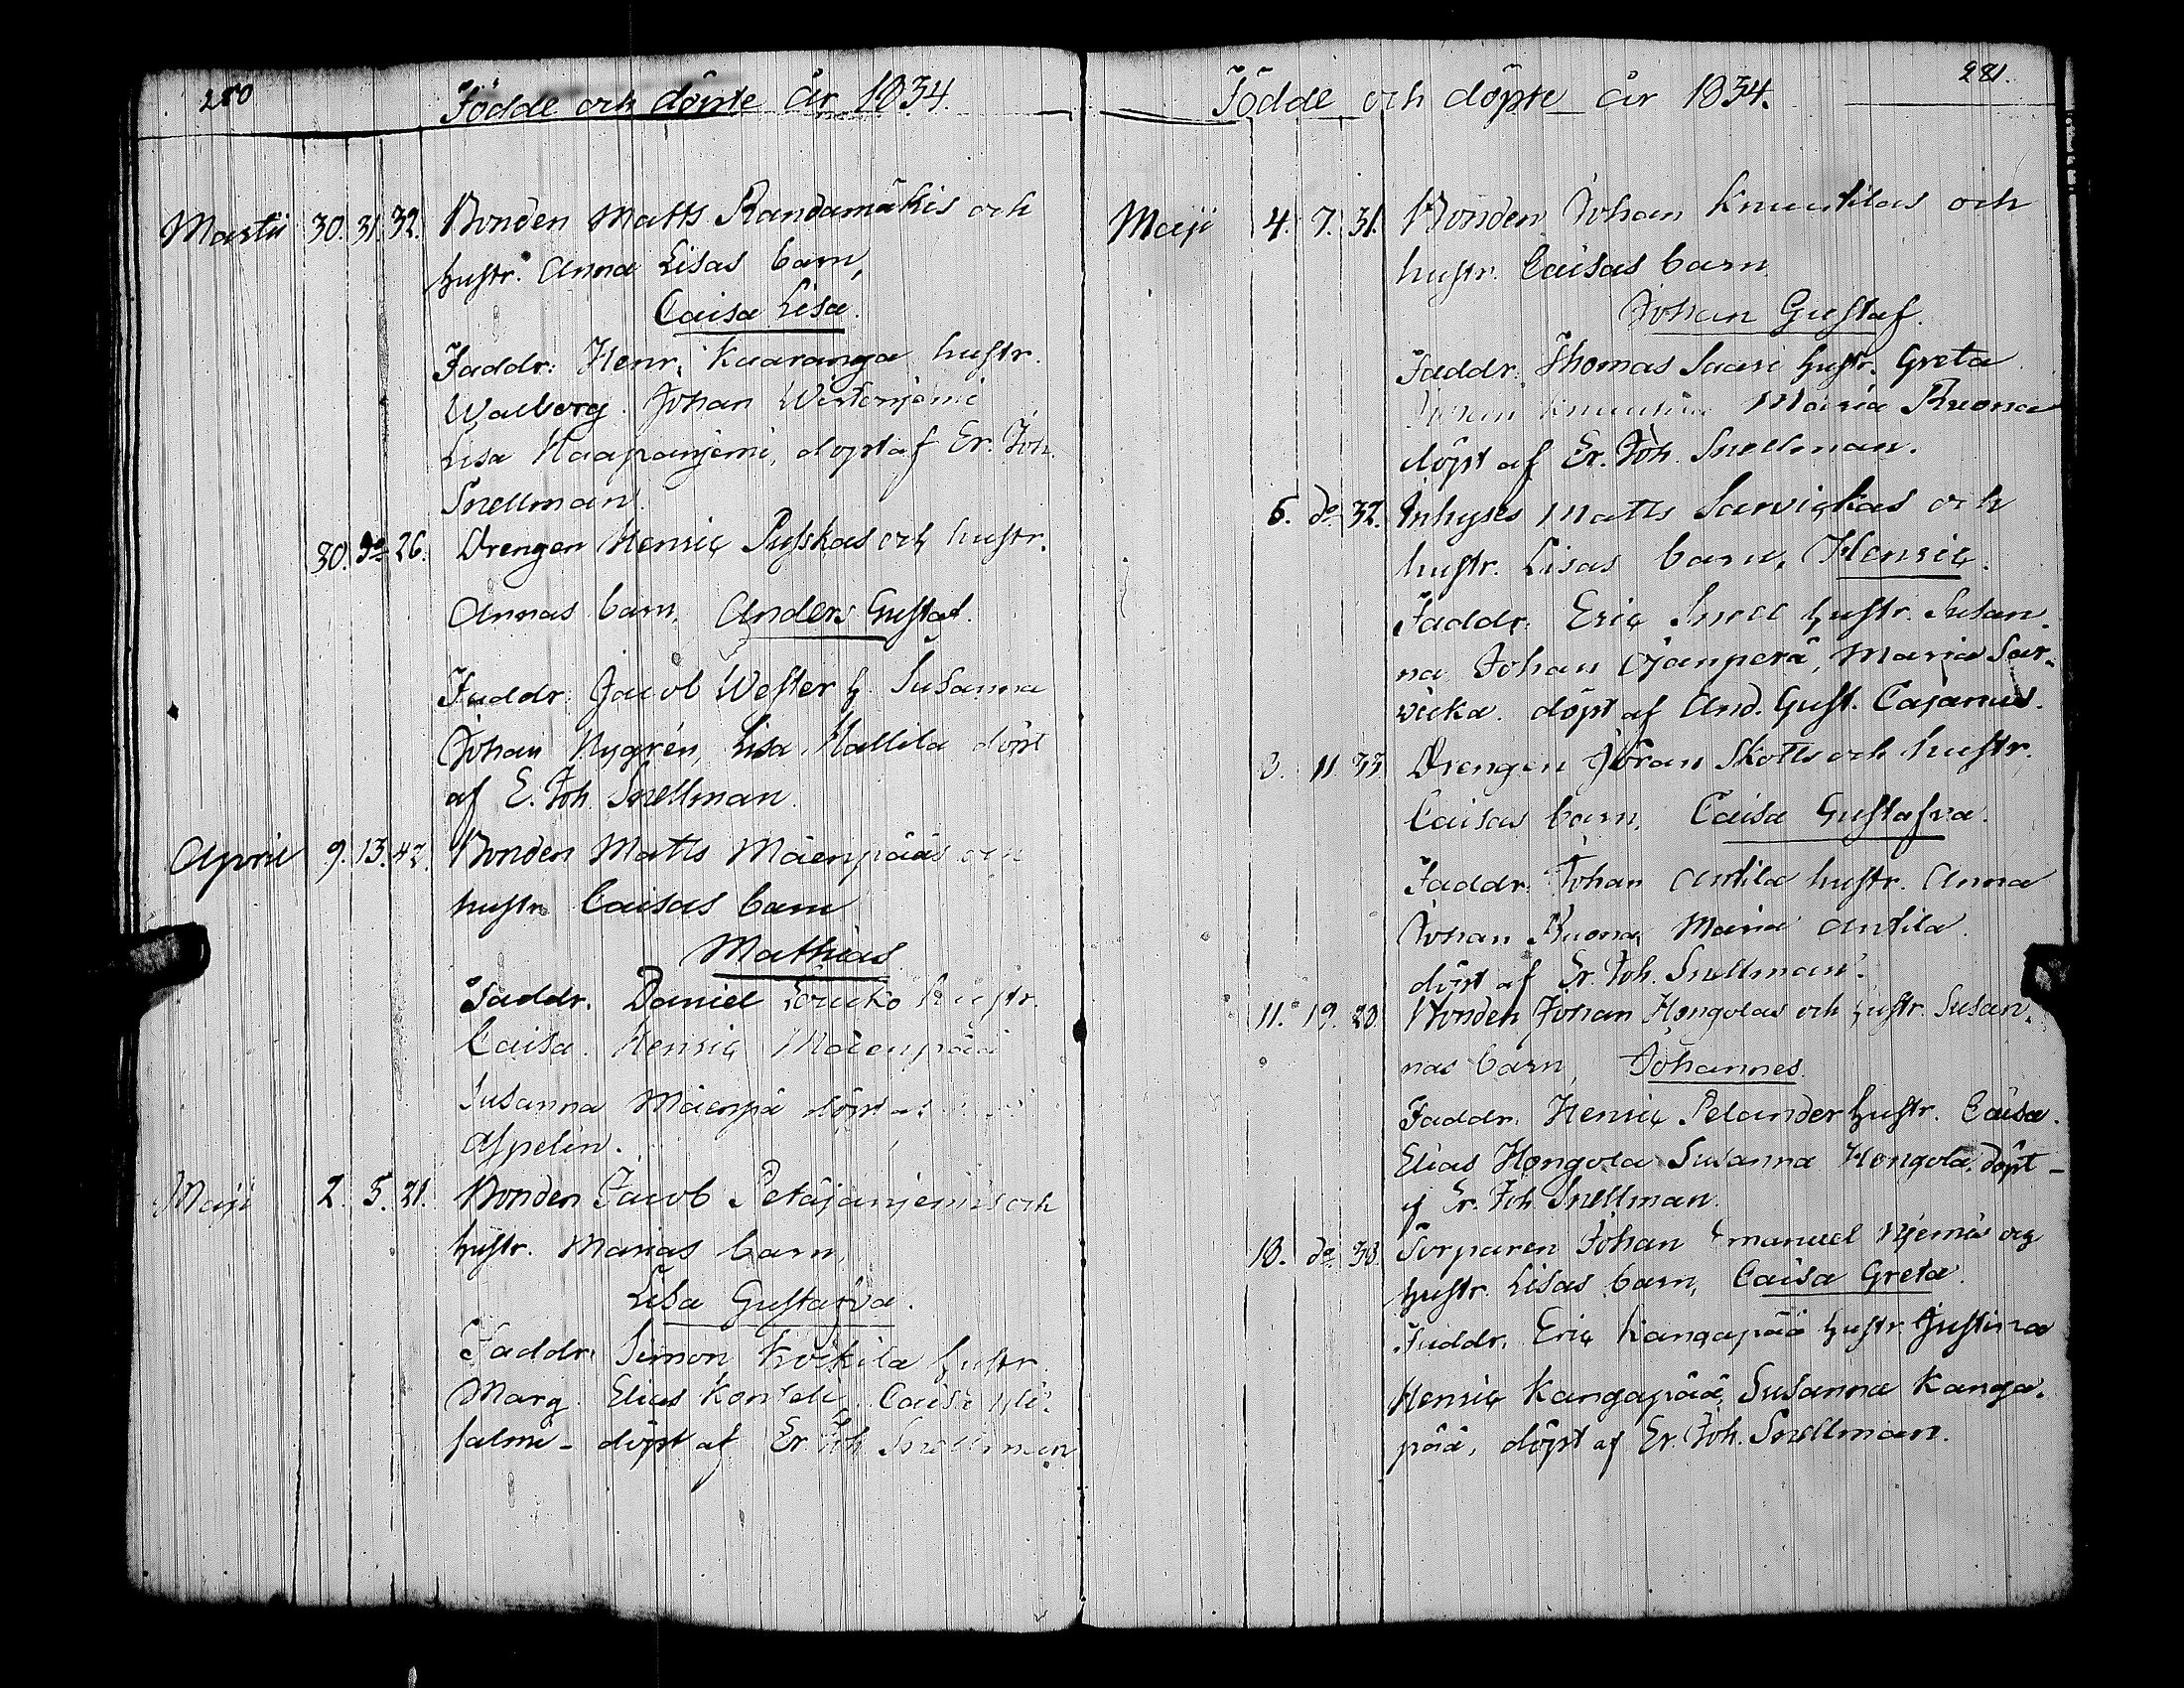 280
Födde och döpte år 1834.
Martii 30. 31. 32. Bonden Matts Randamäkis och
hustr. Anna Lisas barn,
Caisa Lisa.
Faddr. Henr. Kaaranga hustr.
Walborg. Johan
Lisa Haapanjemi, döpt af Er. Joh.
Snellman.
30. do 26. Drengen Henric Pyskas och hustr.
Annas barn, Anders Gustaf.
Faddr. Jacob Wester h. Susanna
Johan Nygrén, Lisa Mallila döpt
af E. Joh. Snellman.
April 9. 13. 42. Bonden Matts Mäenpääs och
hustr. Caisas barn
Mathias
Faddr. Daniel Louko hustr.
Caisa. Henric Mäenpää
Susanna Mäenpä döpt af
Aspelin.
Maji 2. 5. 21. Bonden Jacob Petäjänjemis och
hustr. Marias barn,
Lisa Gustafva.
Faddr. Simon Koikila hustr.
Marg. Elias Konteli, Caisa Yli-
salmi - döpt af Er. Joh. Snellman
281.
Födde och döpte år 1834.
Maji 4. 7. 31. Bonden Johan Knuutilas och
hustr. Caisas barn
Johan Gustaf.
Faddr. Thomas Saari hustr. Greta
Johan Knuutila Maria Ruona
döpt af Er. Joh. Snellman.
6. do 32. Inhyses Matts Sarvickas och
hustr. Lisas barn, Henric.
Faddr. Eric Snell hustr. Susan-
na Johan Ojanperä, Maria Sar-
wicka. döpt af And. Gust. Cajanus.
8. 11. 33 Drengen Göran Skotts och hustr.
Caisas barn, Caisa Gustafva.
Faddr. Johan Antila hustr. Anna
Johan Ruona, Maria Antila.
döpt af Er. Joh. Snellman.
11. 19. 20. Bonden Johan Hongolas och hustr. Susan-
nas barn, Johannes.
Faddr. Henric Pelander hustr. Caisa.
Elias Hongola Susanna Hongola, döpt -
af Er. Joh Snellman.
18. do 38. Torparen Johan Emanuel Njemis och
hustr. Lisas barn, Caisa Greta.
Faddr. Eric Kangapää hustr. Justina
Henric Kangapää, Susanna Kanga-
pää, döpt af Er. Joh. Snellman.